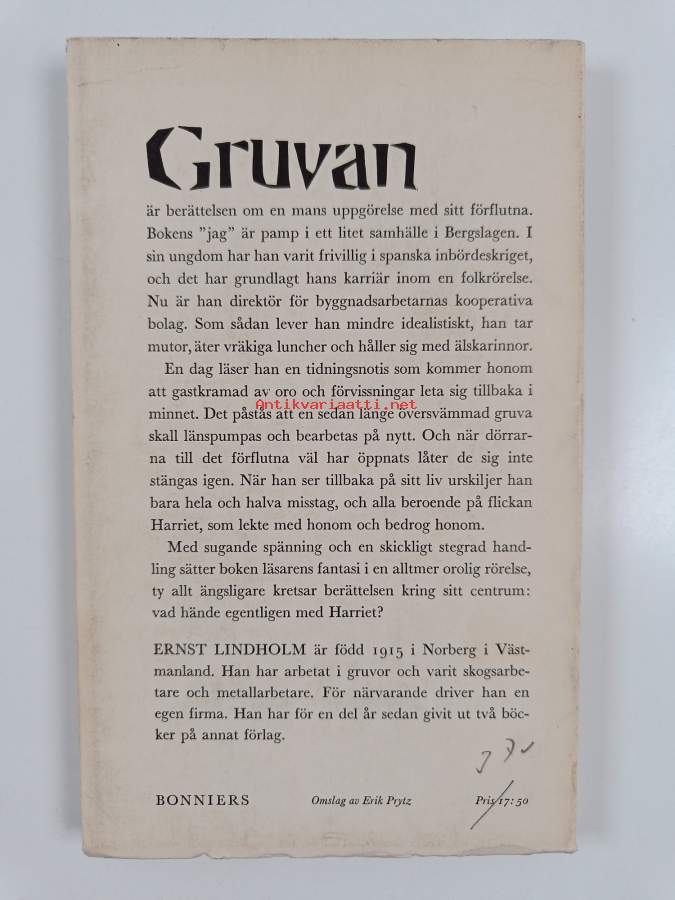 Gruvan
är berättelsen om en mans uppgörelse med sitt förflutna.
Bokens ”jag” är pamp i ett litet samhälle i Bergslagen. I
sin ungdom har han varit frivillig i spanska inbördeskriget,
och det har grundlagt hans karriär inom en folkrörelse.
Nu är han direktör för byggnadsarbetarnas kooperativa
bolag. Som sådan lever han mindre idealistiskt, han tar
mutor, äter vräkiga luncher och håller sig med älskarinnor.
En dag läser han en tidningsnotis som kommer honom
att gastkramad av oro och förvissningar leta sig tillbaka i
Antikvariaatti.net
minnet. Det påstås att en sedan länge översvämmad gruva
skall länspumpas och bearbetas på nytt. Och när dörrar-
na till det förflutna väl har öppnats låter de sig inte
stängas igen. När han ser tillbaka på sitt liv urskiljer han
bara hela och halva misstag, och alla beroende på flickan
Harriet, som lekte med honom och bedrog honom.
Med sugande spänning och en skickligt stegrad hand-
ling sätter boken läsarens fantasi i en alltmer orolig rörelse,
ty allt ängsligare kretsar berättelsen kring sitt centrum:
vad hände egentligen med Harriet?
ERNST LINDHOLM är född 1915 i Norberg i Väst-
manland. Han har arbetat i gruvor och varit skogsarbe-
tare och metallarbetare. För närvarande driver han en
egen firma. Han har för en del år sedan givit ut två böc-
ker på annat förlag.
BONNIERS Omslag av Erik Prytz Pris 17:50